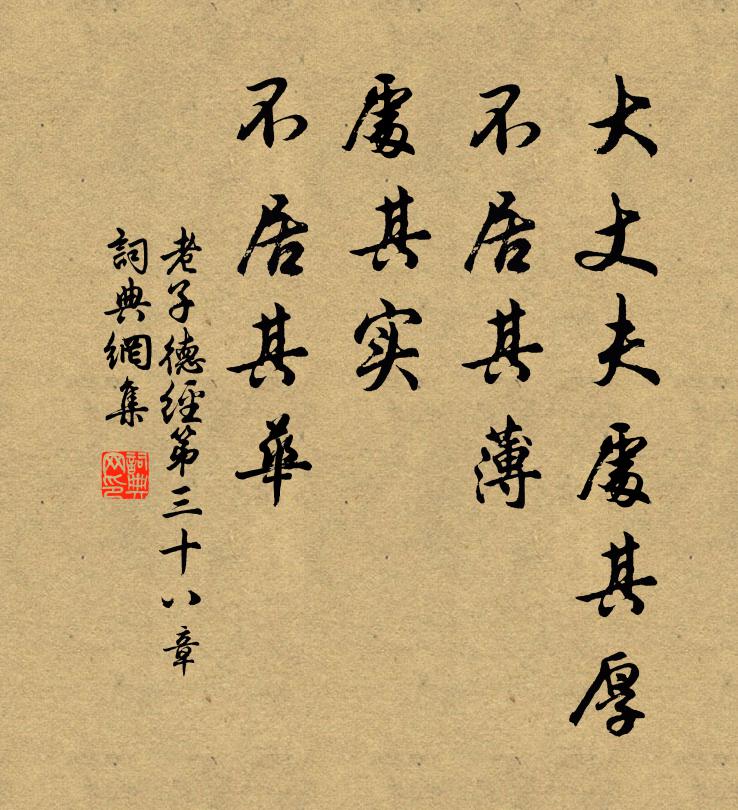 大丈夫處其厚
不居其薄
處其实
不居其華
老子德經第三十八章
詞典網集
詞典网印